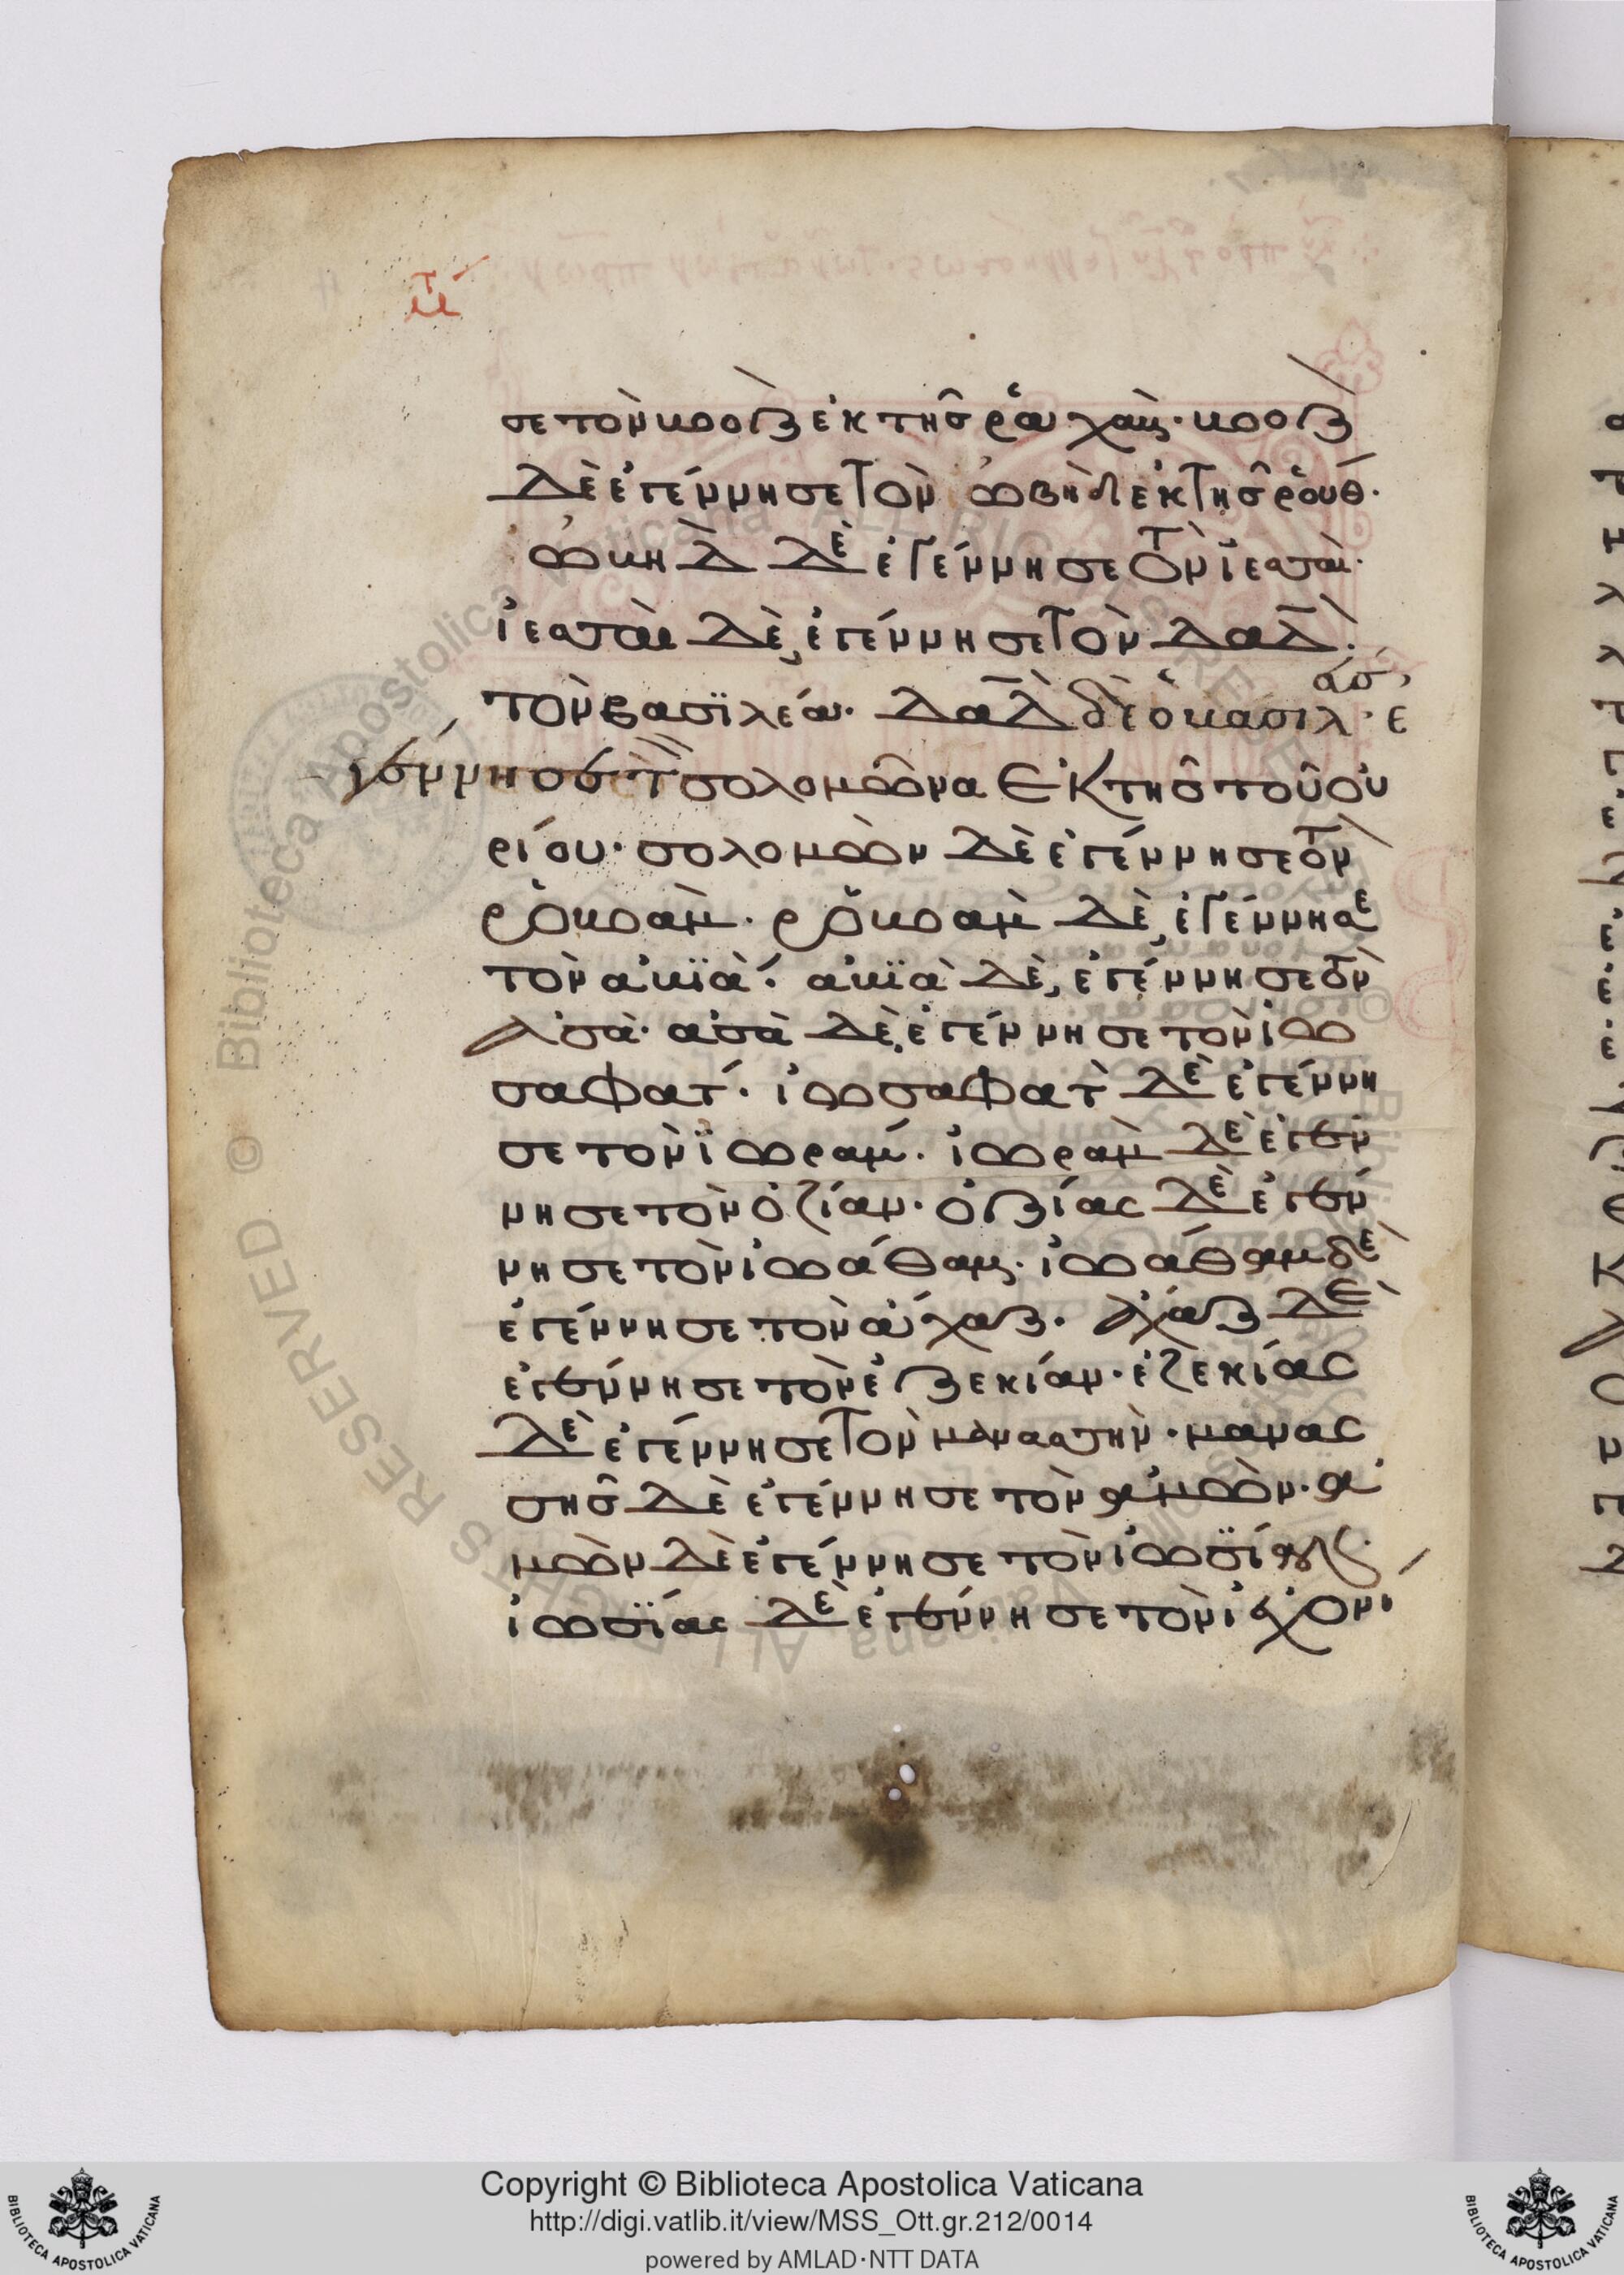 σε τὸν βοὸζ ἐκ τῆς ῥαχάβ· βοὸζ
δὲ ἐγέννησε τὸν ὠβὴδ ἐκ τῆς ῥούθ·
ὠβὴδ δὲ ἐγέννησε τὸν ἰεσσαί·
ἰεσσαὶ δὲ, ἐγέννησε τὸν δαδ·
τὸν βασϊλέα· δαδ δὲ ὁ βασιλ· ε
γέννησε τ̀ σολομῶνα ἐκ τῆς τοῦ οὐ
ρίου· σολομὼν δὲ ἐγέννησε τὸν
ῥοβοὰμ· ῥοβοὰμ δὲ, ἐγέννησε
τὸν ἀβϊὰ· ἀβϊὰ δὲ, ἐγέννησε τὸν
ἀσὰ· ἀσὰ δὲ, ἐγέννησε τὸν ἰω
σαφατ́· ἰωσαφὰτ δὲ ἐγέννη
σε τὸν ϊωραμ́· ἰωρὰμ δὲ ἐγέν
νησε τὸν ὀζίαν· ὀζίας δὲ ἐγέν
νησε τὸν ἰωάθαμ· ἰωάθαμ δὲ
ἐγέννησε τὸν ἄχαζ· ἄχαζ δὲ
ἐγέννησε τὸν ἐζεκίαν· ἐζεκίας
δὲ ἐγέννησε τὸν μανασσὴν· μανασ
σῆς δὲ ἐγέννησε τὸν ἀμὼν· ἀ
μὼν δὲ ἐγέννησε τὸν ἰωσϊαν·
ἰωσϊας δὲ ἐγέννησε τὸν ἰεχονι
Copyright © Biblioteca Apostolica Vaticana
http://digi.vatlib.it/view/MSS_Ott.gr.212/0014
powered by AMLAD·NTT DATA
BIBLIOTECA APOSTOLICA VATICANA
BIBLIOTECA APOSTOLICA VATICANA
Biblioteca Apostolica Vaticana ALL RIGHTS RESERVED ©